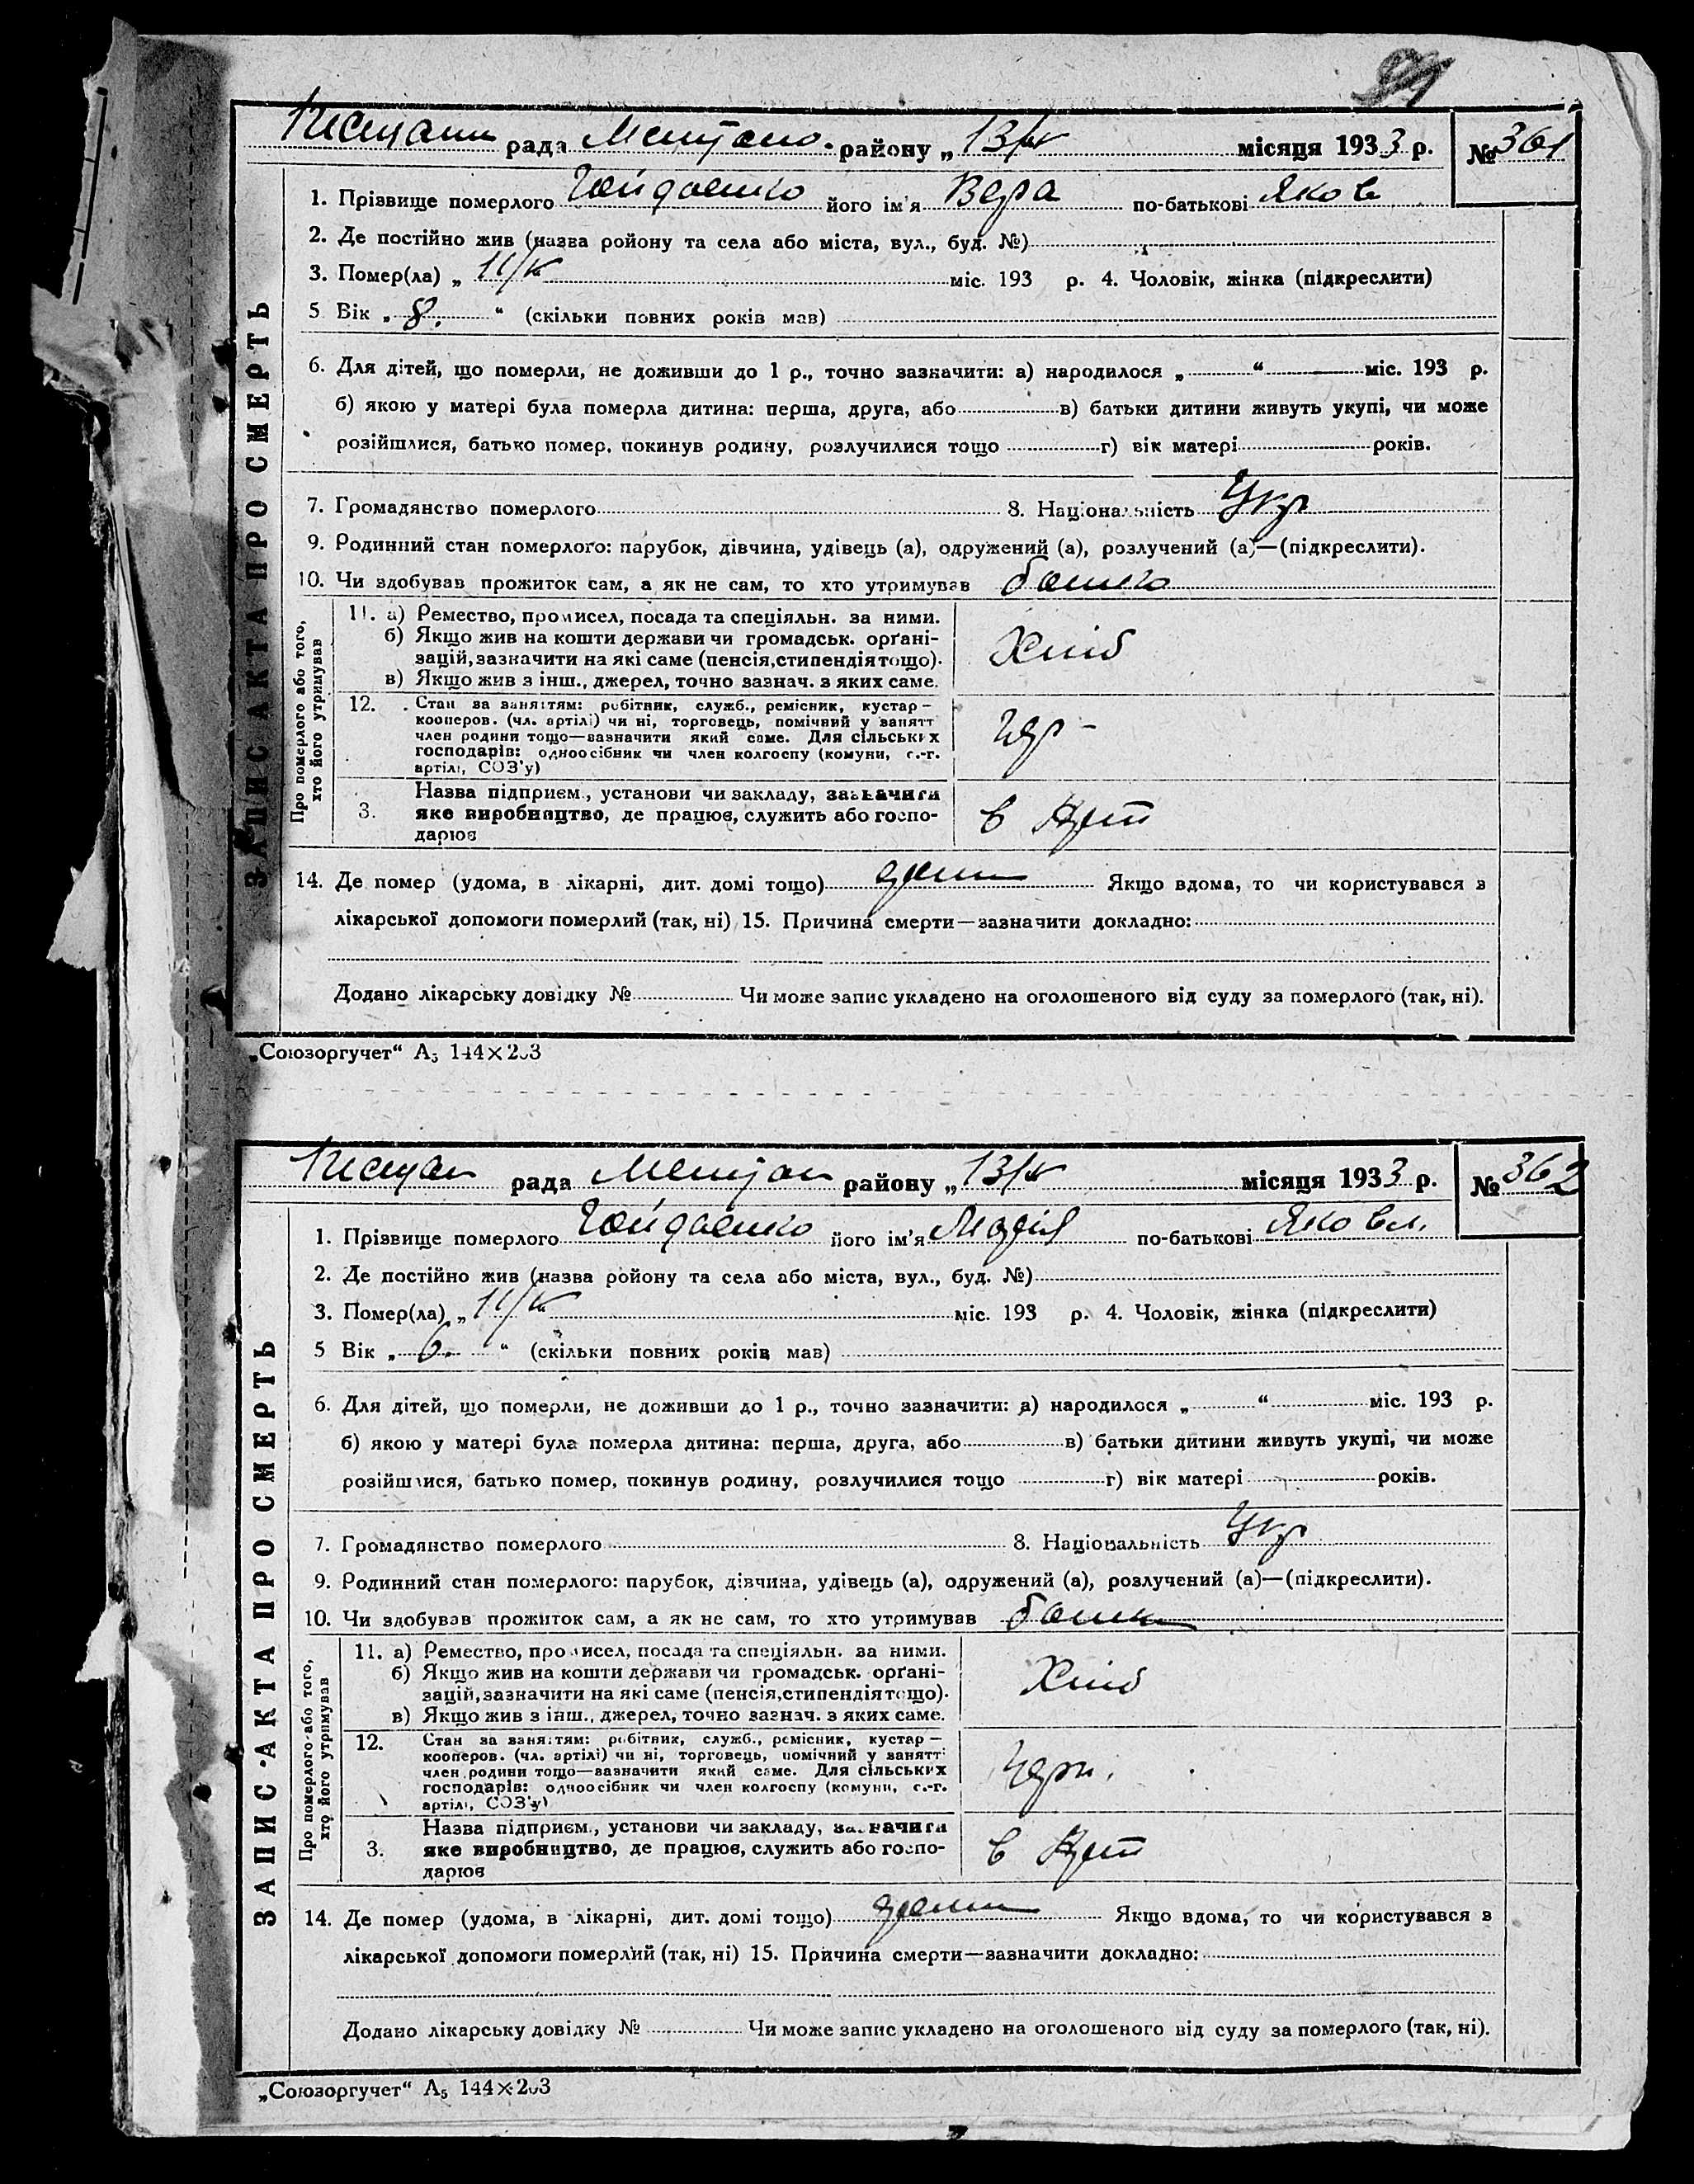 рада районy „ 13/ місяця 1933 р. № 361
1. Прізвище померлого Гайдаєнко його ім'я Вера по-батькові Яков
2. Де постійно жив (назва ройону та села або міста, вул., буд. №)
3. Помер(ла) „ міс. 193 р. 4. Чоловік, жінка (підкреслити)
5 Вік „ 8. “ (скільки повних років мав)
6. Для дітей, що померли, не доживши до 1 р., точно зазначити: а) народилося „ “ міс. 193 р.
б) якою у матері була померла дитина: перша, друга, або в) батьки дитини живуть укупі, чи може
розійшлися, батько помер, покинув родину, розлучилися тощо г) вік матері років.
7. Громадянство померлого 8. Національність Укр
9. Родинний стан померлого: парубок, дівчина, удівець (а), одружений (а), розлучений (а)—(підкреслити).
10. Чи здобував прожиток сам, а як не сам, то хто утримував батько
11. а) Ремество, промисел, посада та спеціяльн. за ними.
б) Якщо жив на кошти держави чи громадськ. орґані-
зацій, зазначити на які саме (пенсія, стипендія тощо).
в) Якщо жив з інш., джерел, точно зазнач. з яких саме.
Хліб
12. Стан за заняттям: робітник, служб., ремісник, кустар —
кооперов. (чл. артілі) чи ні, торговець, помічний у занятт
член родини тощо—зазначити який саме. Для сільських
господарів: одноосібник чи член колгоспу (комуни, с.-г.
артілі, СОЗ'у)
3. Назва підприєм., установи чи закладу, зазначити
яке виробництво, де працює, служить або госпо-
дарює
14. Де помер (удома, в лікарні, дит. домі тощо) дома Якщо вдома, то чи користувався з
лікарської допомоги померлий (так, ні) 15. Причина смерти—зазначити докладно:
Додано лікарську довідку № Чи може запис укладено на оголошеного від суду за померлого (так, ні).
ЗАПИС АКТА ПРО СМЕРТЬ
Про померлого або того,
хто його утримував
„Союзоргучет“ А₅ 144×203
рада району „ 13/ місяця 1933 р. № 362
1. Прізвище померлого Гайдаєнко його ім'я Марія по-батькові Яковл.
2. Де постійно жив (назва ройону та села або міста, вул., буд. №)
3. Помер(ла) „ міс. 193 р. 4. Чоловік, жінка (підкреслити)
5 Вік „ 6. “ (скільки повних років мав)
6. Для дітей, що померли, не доживши до 1 р., точно зазначити: а) народилося „ “ міс. 193 р.
б) якою у матері була померла дитина: перша, друга, або в) батьки дитини живуть укупі, чи може
розійшлися, батько помер, покинув родину, розлучилися тощо г) вік матері років.
7. Громадянство померлого 8. Національність Укр
9. Родинний стан померлого: парубок, дівчина, удівець (а), одружений (а), розлучений (а)—(підкреслити).
10. Чи здобував прожиток сам, а як не сам, то хто утримував
11. а) Ремество, промисел, посада та спеціяльн. за ними.
б) Якщо жив на кошти держави чи громадськ. орґані-
зацій, зазначити на які саме (пенсія, стипендія тощо).
в) Якщо жив з інш., джерел, точно зазнач. з яких саме.
Хліб
12. Стан за заняттям: робітник, служб., ремісник, кустар —
кооперов. (чл. артілі) чи ні, торговець, помічний у занятт
член родини тощо—зазначити який саме. Для сільських
господарів: одноосібник чи член колгоспу (комуни, с.-г.
артілі, СОЗ'у)
3. Назва підприєм., установи чи закладу, зазначити
яке виробництво, де працює, служить або госпо-
дарює
14. Де помер (удома, в лікарні, дит. домі тощо) дома Якщо вдома, то чи користувався з
лікарської допомоги померлий (так, ні) 15. Причина смерти—зазначити докладно:
Додано лікарську довідку № Чи може запис укладено на оголошеного від суду за померлого (так, ні).
ЗАПИС АКТА ПРО СМЕРТЬ
Про померлого або того,
хто його утримував
„Союзоргучет“ А₅ 144×203